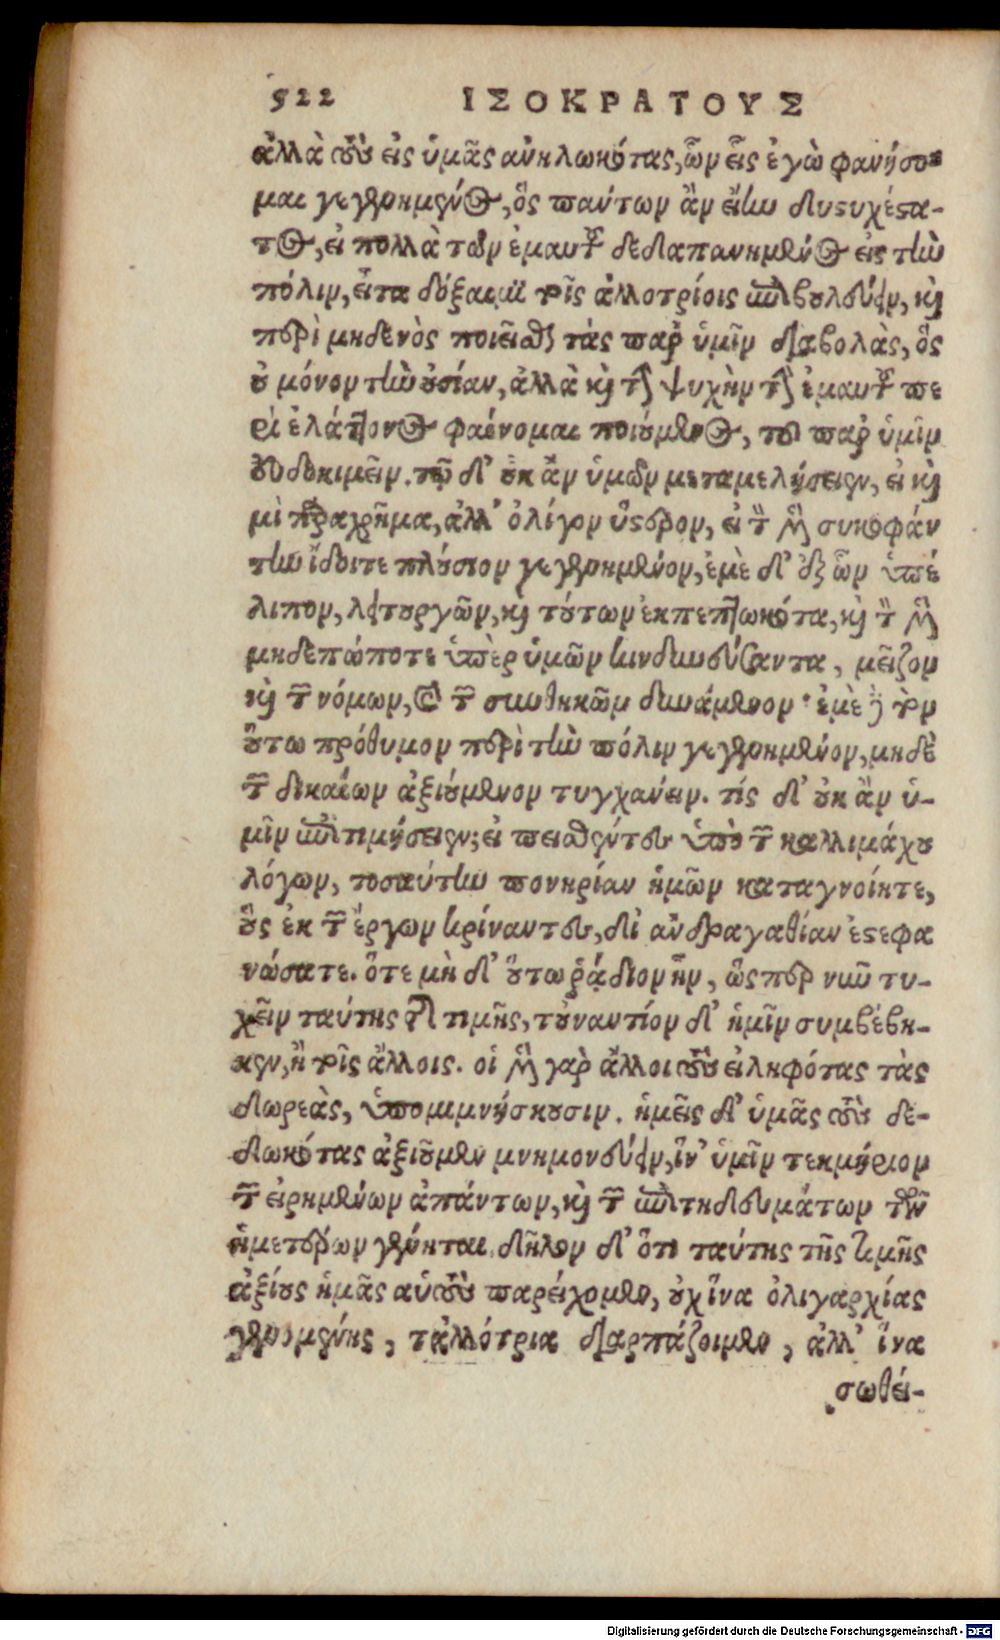 522 ΙΣΟΚΡΑΤΟΥΣ
ἀλλὰ τοὺς εἰς ὑμᾶς ἀνηλωκότας, ὧν εἷς ἐγὼ φανήσο-
μαι γεγενημένος, ὃς πάντων ἂν εἴην δυστυχέστα-
τος, εἰ πολλὰ τῶν ἐμαυτοῦ δεδαπανημένος εἰς τὴν
πόλιν, εἶτα δόξαιμι τοῖς ἀλλοτρίοις ἐπιβουλεύειν, καὶ
περὶ μηδενὸς ποιεῖσθαι τὰς παρ' ὑμῖν διαβολὰς, ὃς
οὐ μόνον τὴν οὐσίαν, ἀλλὰ καὶ τὴν ψυχὴν τὴν ἐμαυτοῦ πε
ρὶ ἐλάττονος φαίνομαι ποιούμενος, τοῦ παρ' ὑμῖν
εὐδοκιμεῖν. τῷ δ' οὐκ ἂν ὑμῶν μεταμελήσειεν, εἰ καὶ
μὴ παραχρῆμα, ἀλλ' ὀλίγον ὕστερον, εἰ τὸν μὲν συκοφάν
την ἴδοιτε πλούσιον γεγενημένον, ἐμὲ δ' ἐξ ὧν ὑπέ
λιπον, λειτουργῶν, καὶ τούτων ἐκπεπτωκότα, καὶ τὸν μὲν
μηδεπώποτε ὑπὲρ ὑμῶν κινδυνεύσαντα, μεῖζον
καὶ τῶν νόμων, καὶ τῶν συνθηκῶν δυνάμενον· ἐμὲ δὲ τὸν
οὕτω πρόθυμον περὶ τὴν πόλιν γεγενημένον, μηδὲ
τῶν δικαίων ἀξιούμενον τυγχάνειν. τίς δ' οὐκ ἂν ὑ-
μῖν ἐπιτιμήσειεν; εἰ πεισθέντες ὑπὸ τῶν καλλιμάχου
λόγων, τοσαύτην πονηρίαν ἡμῶν καταγνοίητε,
οὓς ἐκ τῶν ἔργων κρίναντες, δι' ἀνδραγαθίαν ἐστεφα
νώσατε. ὅτε μὴ δ' οὕτω ῥᾴδιον ἦν, ὥσπερ νῦν τυ-
χεῖν ταύτης τῆς τιμῆς, τοὐναντίον δ' ἡμῖν συμβέβη-
κεν, ἢ τοῖς ἄλλοις. οἱ μὲν γὰρ ἄλλοι τοὺς εἰληφότας τὰς
δωρεὰς, ὑπομιμνήσκουσιν. ἡμεῖς δ' ὑμᾶς τοὺς δε-
δωκότας ἀξιοῦμεν μνημονεύειν, ἵν' ὑμῖν τεκμήριον
τῶν εἰρημένων ἁπάντων, καὶ τῶν ἐπιτηδευμάτων τῶν
ἡμετέρων γένηται. δῆλον δ' ὅτι ταύτης τῆς τιμῆς
ἀξίους ἡμᾶς αὐτοὺς παρείχομεν, οὐχ ἵνα ὀλιγαρχίας
γενομένης, τἀλλότρια διαρπάζοιμεν, ἀλλ' ἵνα
σωθεί-
Digitalisierung gefördert durch die Deutsche Forschungsgemeinschaft - DFG